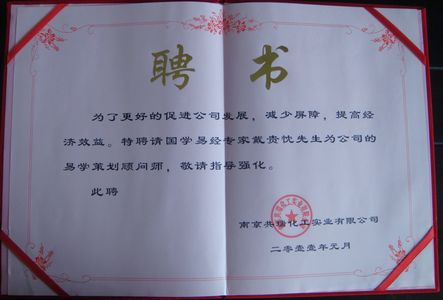 聘书
为了更好的促进公司发展，减少屏障，提高经
济效益。特聘请国学易经专家戴贵忱先生为公司的
易学策划顾问师，敬请指导强化。
此聘
南京共瑞化工实业有限公司
二零壹壹年元月